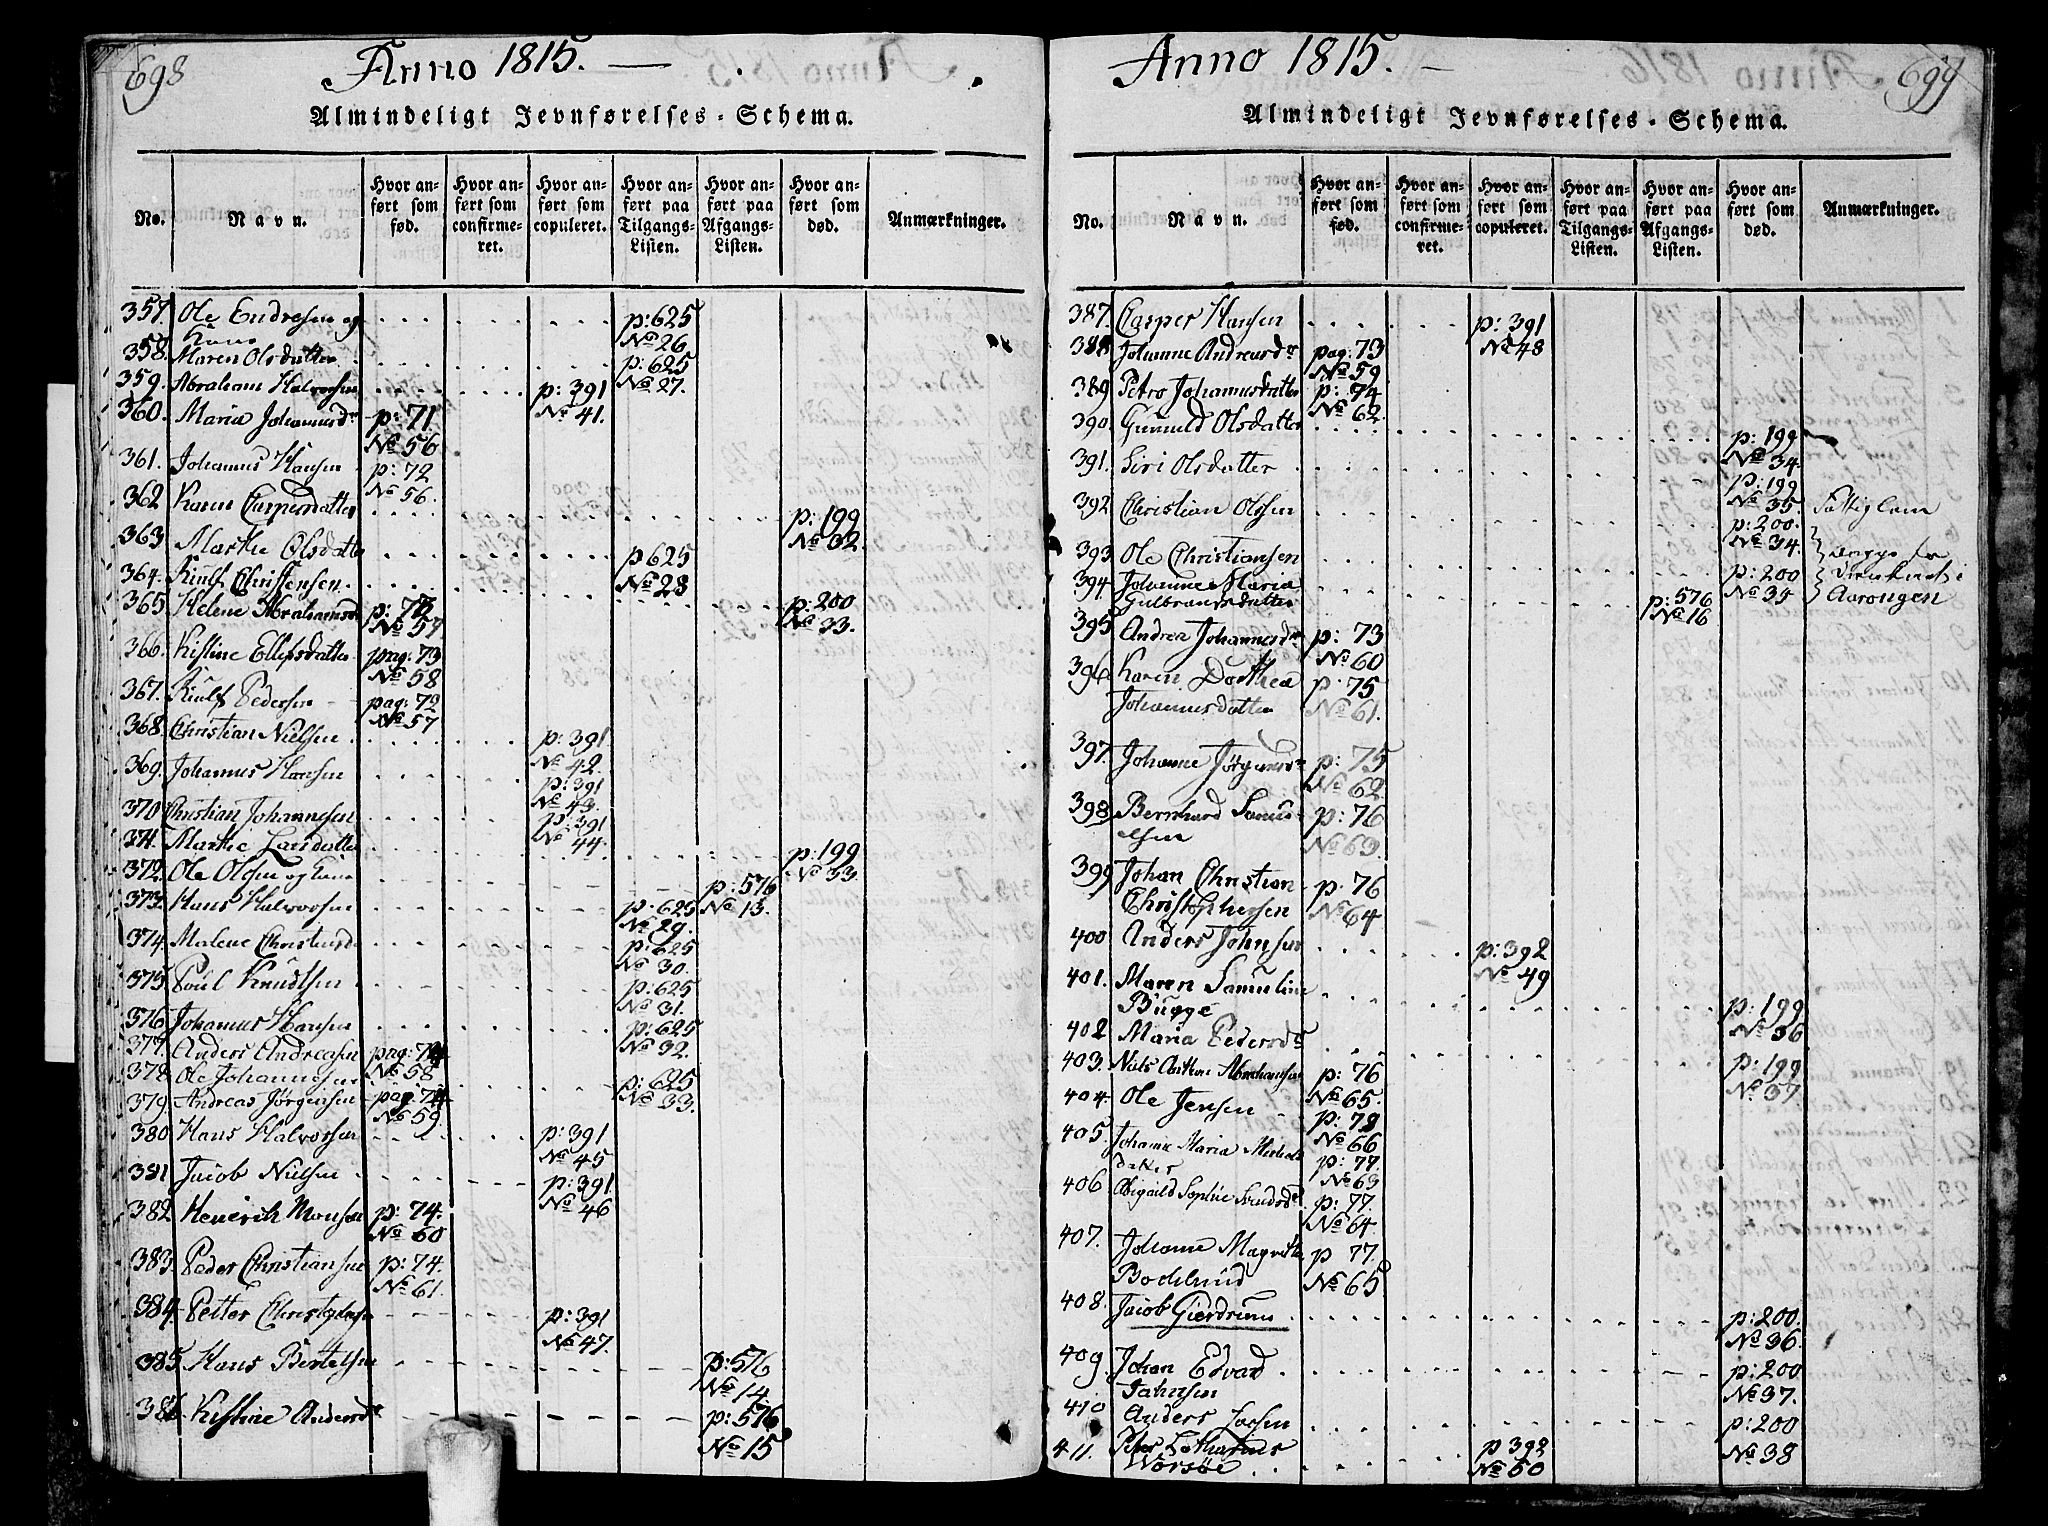 698
Anno 1815.
Almindeligt Jevnførelses-Schema.
No.
Navn.
Hvor anført som fød.
Hvor anført som confirmeret.
Hvor anført som copuleret.
Hvor anført paa Tilgangs-Listen.
Hvor anført paa Afgangs-Listen.
Hvor anført som død.
Anmærkninger.
357. Ole Endresen og p: 625
Kone No 26
358. Maren Olsdatter p: 625
No 27.
359. Abraham Halvorsen p: 391
No 41.
360. Maria Johannesdr p: 71
No 56
361. Johannes Hansen p: 72
No 56.
362 Karen Caspersdatter p: 199
No 32.
363 Marthe Olsdatter p 625
No 28
364. Christensen p: 200
No 33.
365. Helene Abrahamsd p: 72
No 57
366. Kistine Ellefsdatter pag: 73
No 58
367. Pedersen pag: 72
No 57
368. Christian Nielsen p: 391
No 42.
369. Johannes Hansen p: 391
No 43.
370 Christian Johannesen p: 391
No 44.
371. Marthe Larsdatter p: 199
No 33
372. Ole Olsen og p: 576
No 13.
373. Hans Halvorsen p: 625
No 29.
374. Malene p: 625
No 30.
375. Poul Knudtsen p: 625
No 31.
376. Johannes Hansen p: 625
No 32.
377. Anders Andreasen pag: 74
No 58
378. Ole Johannesen p: 625
No 33.
379. Andreas Jørgensen pag: 74
No 59.
380. Hans Halvorsen p: 391
No 45
381 Jacob Nielsen p: 391
No 46
382. Henrich Monsen p: 74.
No 60
383. Peder Christiansen p: 74.
No 61.
384. Petter p: 391
No 47.
385. Hans Bertelsen p: 576
No 14.
386. Kistine Andersdr p: 576
No 15
699
Anno 1815.
Almindeligt Jevnførelses-Schema.
No.
Navn.
Hvor anført som fød.
Hvor anført som confirmeret.
Hvor anført som copuleret.
Hvor anført paa Tilgangs-Listen.
Hvor anført paa Afgangs-Listen.
Hvor anført som død.
Anmærkninger.
387. Casper Hansen p: 391
No 48
388 Johanne Andreasdr pag: 73
No 59
389 Petro Johannesdatter p: 74
No 62.
390. Gunnild Olsdatter p: 199
No 34.
391. Siri Olsdatter p: 199
No 35.
392 Christian Olssen p: 200.
No 34.
393 Ole Christiansen p: 200
No 35
394 Johanne Maria p: 576
Gulbrandsdatter No 16
395 Andrea Johannesdr p: 73
No 60
396 Karen Dorthea p: 75
Johannesdatter No 61.
397. Johanne p: 75
No 62.
398. Bernhard p: 76
No 63.
399 Johan Christian p: 76
Christophersen No 64
400 Anders Johnsen p: 392
No 49
401. Maren
Bugge p: 199
No 36
402 Maria Pedersdr p: 199
No 37
403. Niels Abrahamsen p: 76
No 65.
404. Ole Jensen p: 78
No 66
405. Johanne Maria p: 77.
datter No 63
406 Sophie p: 77.
No 64.
407. Johanne p 77.
No 65
408. Jacob Gierdrum p: 200.
No 36
409. Johan Edvard p: 200
Jahnsen No 37.
410 Anders p: 200
No 38
411. Peter p 392
Worsøe No 50